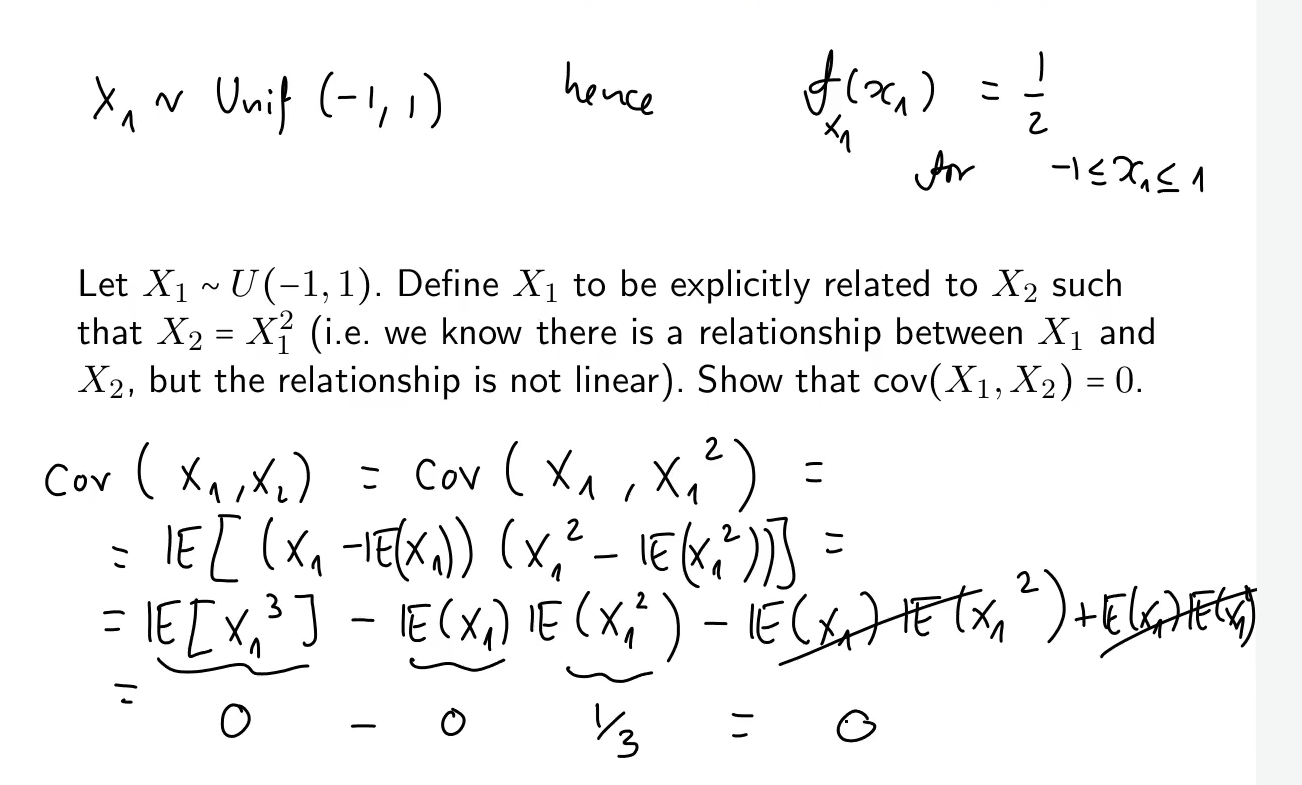 X₁ ~ Unif (-1, 1) hence f_{X₁}(x₁) = 1/2
for -1 ≤ x₁ ≤ 1
Let X₁ ~ U(−1, 1). Define X₁ to be explicitly related to X₂ such
that X₂ = X₁² (i.e. we know there is a relationship between X₁ and
X₂, but the relationship is not linear). Show that cov(X₁, X₂) = 0.
Cov ( X₁, X₂) = Cov ( X₁, X₁² ) =
= 𝔼[ (X₁ - 𝔼(X₁)) (X₁² - 𝔼(X₁²))] =
= 𝔼[X₁³] - 𝔼(X₁) 𝔼(X₁²) - 𝔼(X₁) 𝔼(X₁²) + 𝔼(X₁) 𝔼(X₁²)
= 0 - 0 1/3 = 0